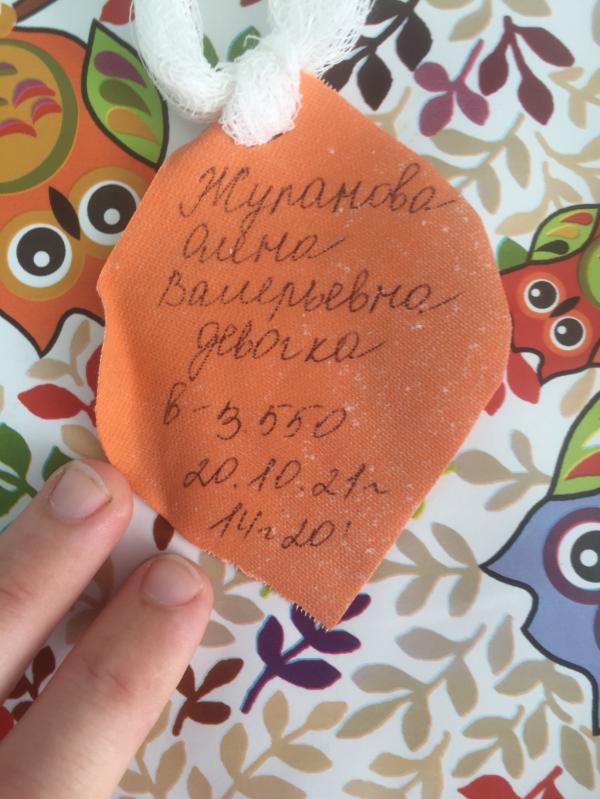 Журанова
Алёна
Валерьевна
девочка
в-3.550
20.10.21г
14г20'